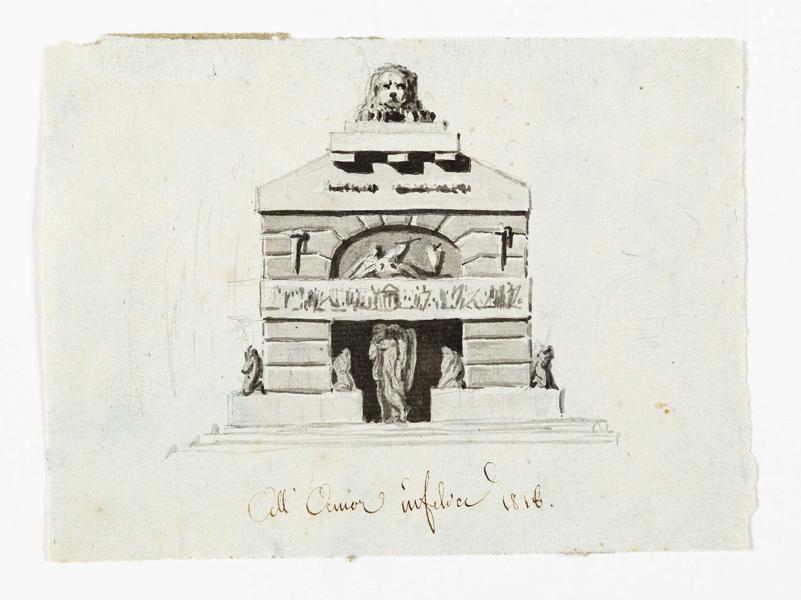 All' Amor infelice 1816.